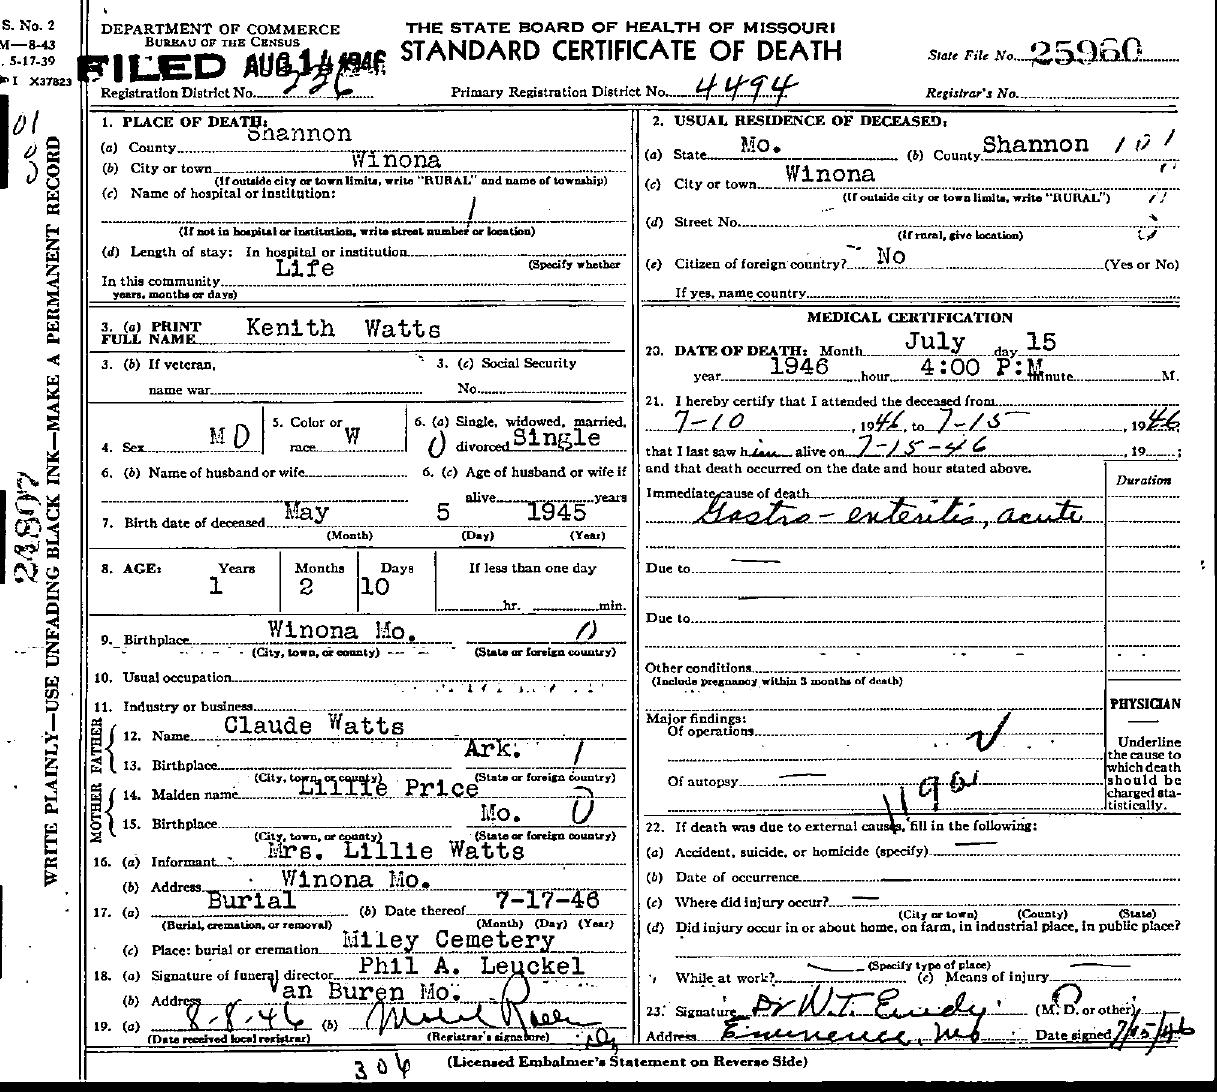 S. No. 2
M—8-43
5-17-39
I X37823
DEPARTMENT OF COMMERCE
BUREAU OF THE CENSUS
THE STATE BOARD OF HEALTH OF MISSOURI
STANDARD CERTIFICATE OF DEATH
State File No. 25960
FILED AUG 14 1946
Registration District No. 336
Primary Registration District No. 4494
Registrar's No.
WRITE PLAINLY—USE UNFADING BLACK INK—MAKE A PERMANENT RECORD
1. PLACE OF DEATH:
(a) County Shannon
(b) City or town Winona
(If outside city or town limits, write "RURAL" and name of township)
(c) Name of hospital or institution:
(If not in hospital or institution, write street number or location)
(d) Length of stay: In hospital or institution
(Specify whether
In this community Life
years, months or days)
3. (a) PRINT FULL NAME Kenith Watts
3. (b) If veteran, name war
3. (c) Social Security No.
4. Sex M D
5. Color or race W
6. (a) Single, widowed, married, divorced Single
6. (b) Name of husband or wife
6. (c) Age of husband or wife if alive years
7. Birth date of deceased May 5 1945
(Month) (Day) (Year)
8. AGE: Years Months Days If less than one day
1 2 10 hr. min.
9. Birthplace Winona Mo. 0
(City, town, or county) (State or foreign country)
10. Usual occupation
11. Industry or business
FATHER
12. Name Claude Watts
13. Birthplace Ark. 1
(City, town, or county) (State or foreign country)
MOTHER
14. Maiden name Lillie Price
15. Birthplace Mo. 0
(City, town, or county) (State or foreign country)
16. (a) Informant Mrs. Lillie Watts
(b) Address Winona Mo.
17. (a) Burial (b) Date thereof 7-17-46
(Burial, cremation, or removal) (Month) (Day) (Year)
(c) Place: burial or cremation Miley Cemetery
18. (a) Signature of funeral director Phil A. Leuckel
(b) Address Van Buren Mo.
19. (a) 8-8-46 (b)
(Date received local registrar) (Registrar's signature)
2. USUAL RESIDENCE OF DECEASED:
(a) State Mo. (b) County Shannon 101
(c) City or town Winona
(If outside city or town limits, write "RURAL")
(d) Street No.
(If rural, give location)
(e) Citizen of foreign country? No (Yes or No)
If yes, name country
MEDICAL CERTIFICATION
20. DATE OF DEATH: Month July day 15
year 1946 hour 4:00 P:M minute M.
21. I hereby certify that I attended the deceased from
7-10, 1946, to 7-15 1946
that I last saw him alive on 7-15-46, 19 ;
and that death occurred on the date and hour stated above.
Duration
Immediate cause of death
Gastro-enteritis, acute
Due to
Due to
Other conditions
(Include pregnancy within 3 months of death)
Major findings:
Of operations
Of autopsy
PHYSICIAN
Underline
the cause to
which death
should be
charged sta-
tistically.
22. If death was due to external causes, fill in the following:
(a) Accident, suicide, or homicide (specify)
(b) Date of occurrence
(c) Where did injury occur?
(City or town) (County) (State)
(d) Did injury occur in or about home, on farm, in industrial place, in public place?
(Specify type of place)
While at work? (e) Means of injury
23. Signature Dr W.T. Eudy (M. D. or other)
Address Eminence, Mo Date signed 7/15/46
(Licensed Embalmer's Statement on Reverse Side)
306